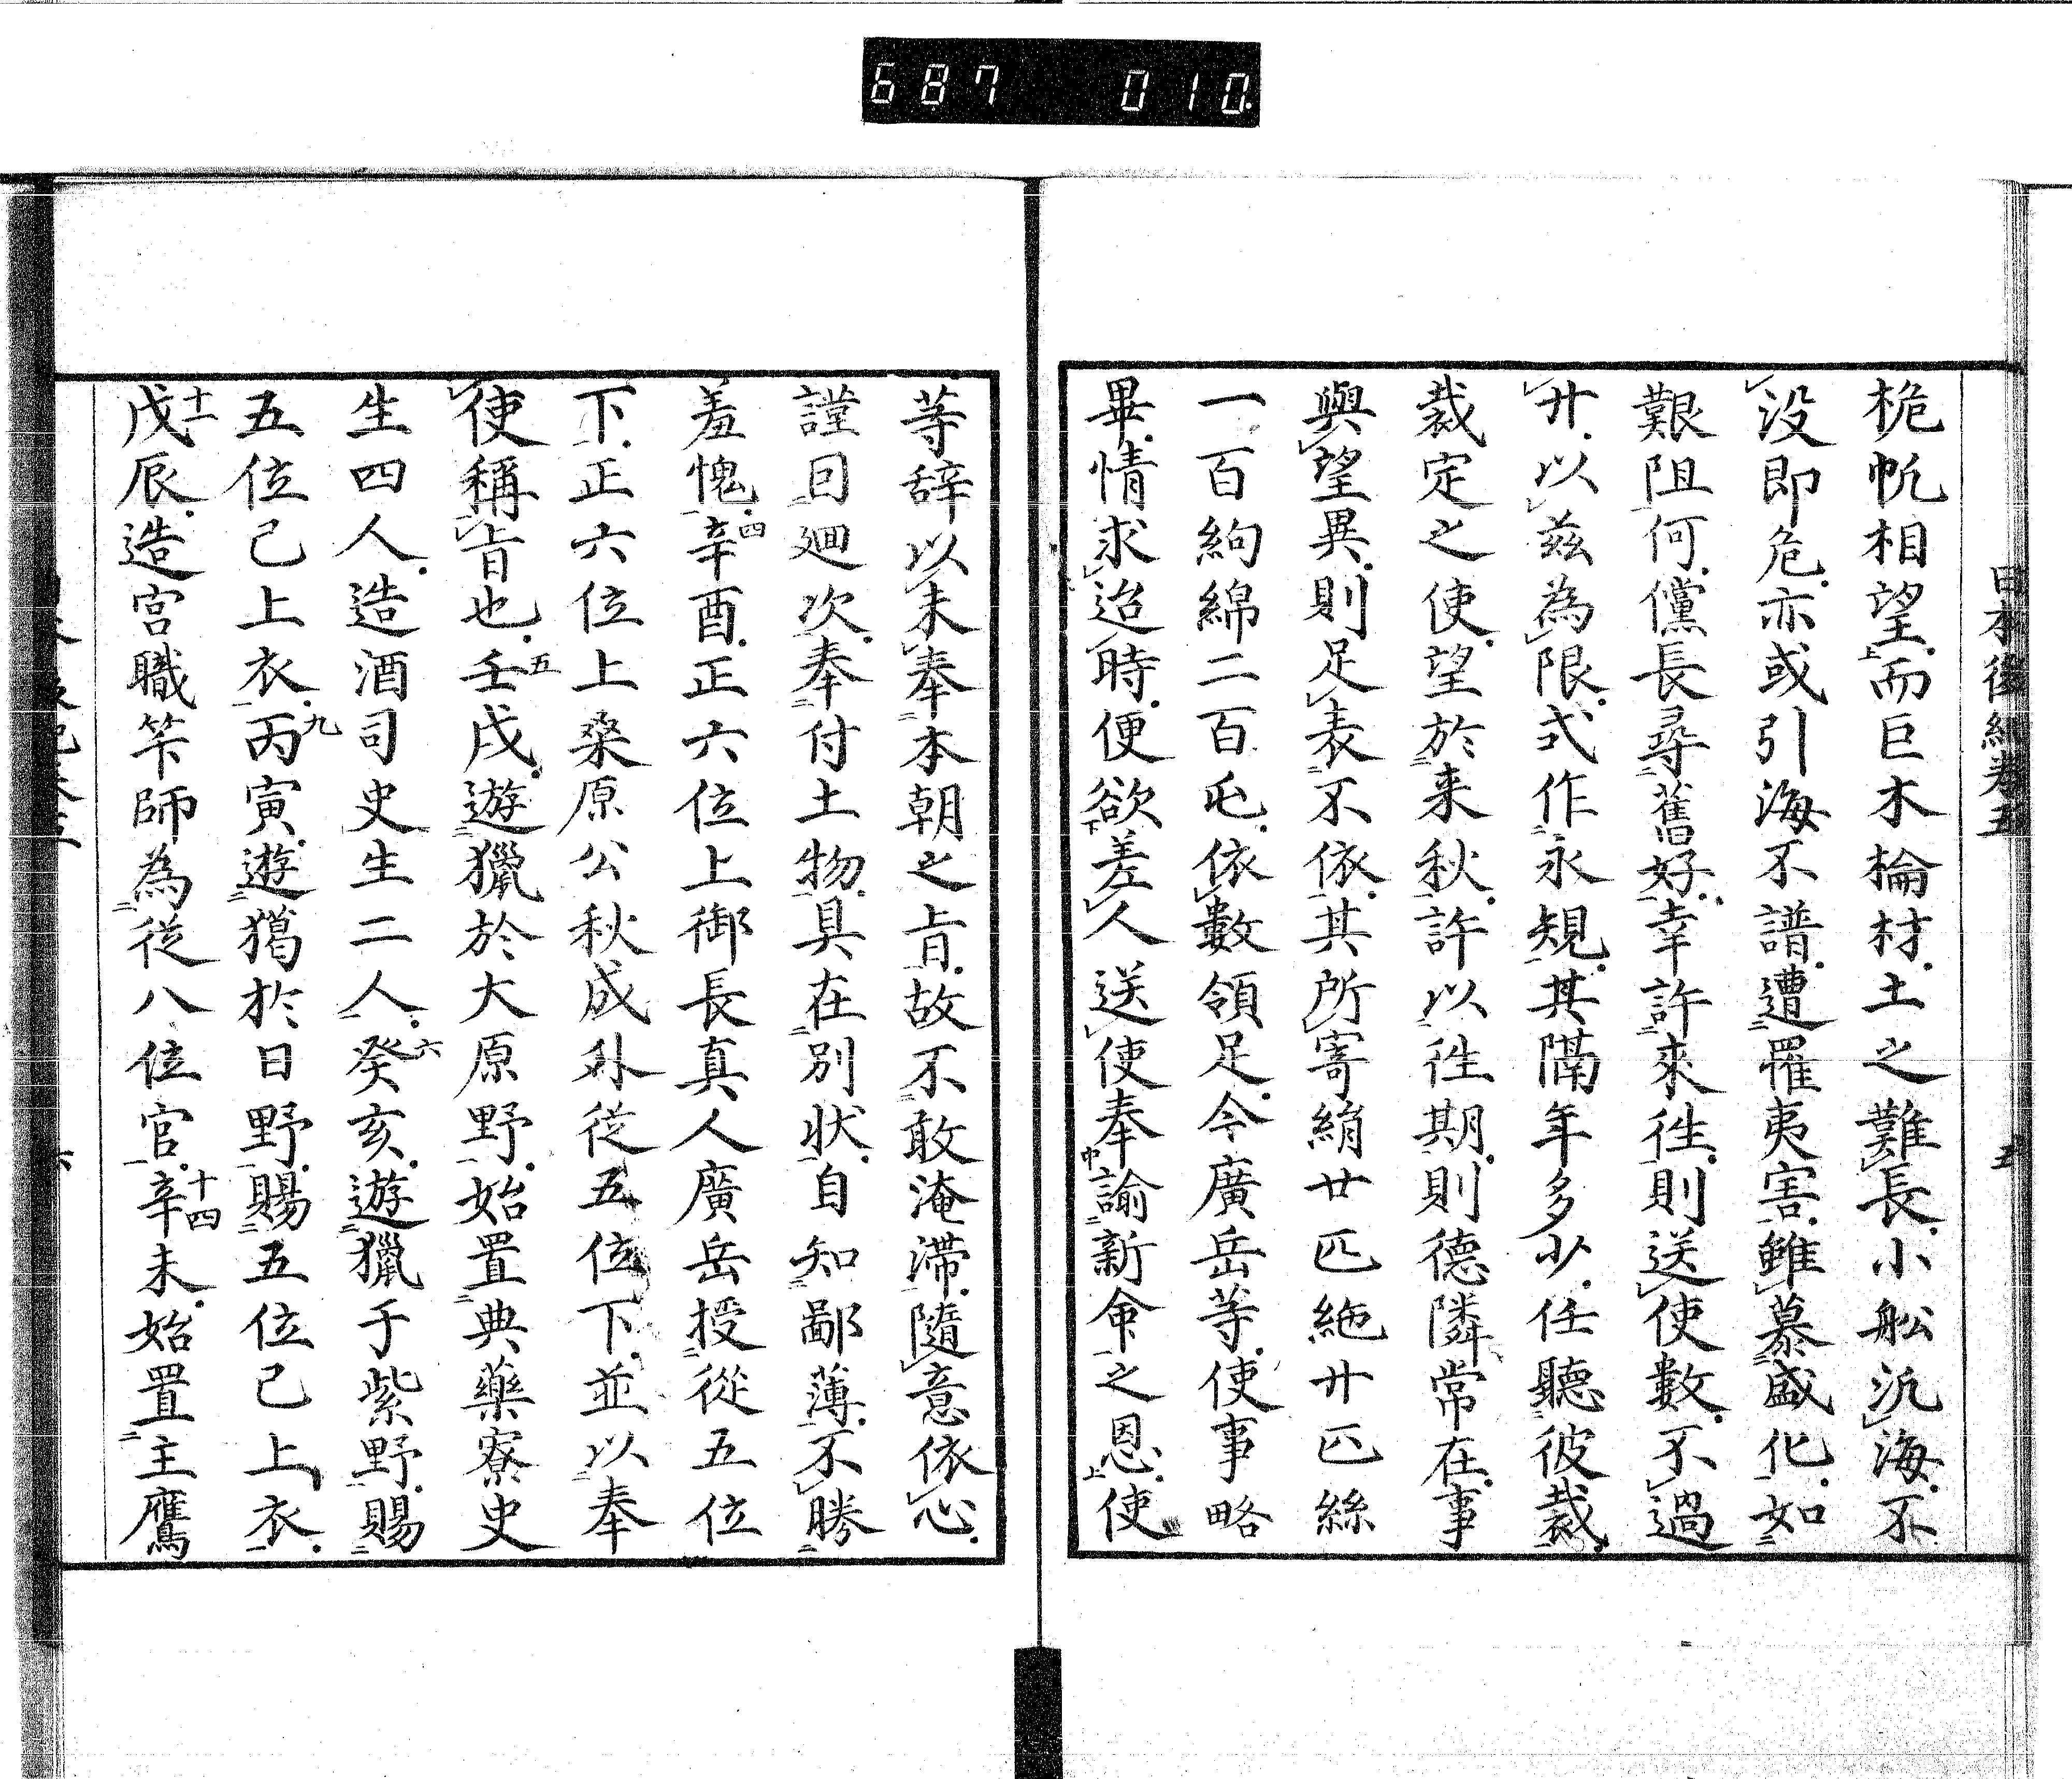 687 010.
日本後紀卷五 五
桅帆相望而巨木棆材土之難長小舩泛海不
没即危亦或引海不諧遭罹夷害雖慕盛化如
艱阻何儻長尋舊好幸許來徃則送使數不過
廾以兹為限式作永規其隔年多少任聽彼裁
裁定之使望於来秋許以徃期則德隣常在事
與望異則足表不依其所寄絹廿匹絁廾匹絲
一百絇綿二百屯依數領足今廣岳等使事略
畢情求迨時便欲差人送使奉諭新命之恩使
等辞以未奉本朝之旨故不敢淹滞隨意依心
謹囙廻次奉付土物具在別状自知鄙薄不勝
羞愧辛酉正六位上御長真人廣岳授從五位
四
下正六位上桑原公秋成外従五位下並以奉
使稱旨也壬戌遊獵於大原野始置典藥寮史
五
生四人造酒司史生二人癸亥遊獵于紫野賜
六
五位已上衣丙寅遊獦於日野賜五位已上衣
九
戊辰造宮職笇師為従八位官辛未始置主鷹
十一
十四